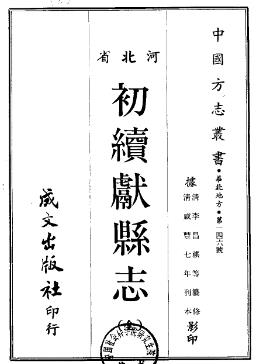 中國方志叢書・華北地方・第一四六號
據清李昌祺等纂修
清咸豐七年刊本影印
河北省
初續獻縣志
(全)
成文出版社印行